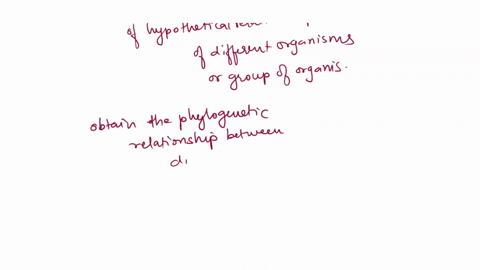 of hypothetical
of different organisms
or group of organis.
obtain the phylogenetic
relationship between
di